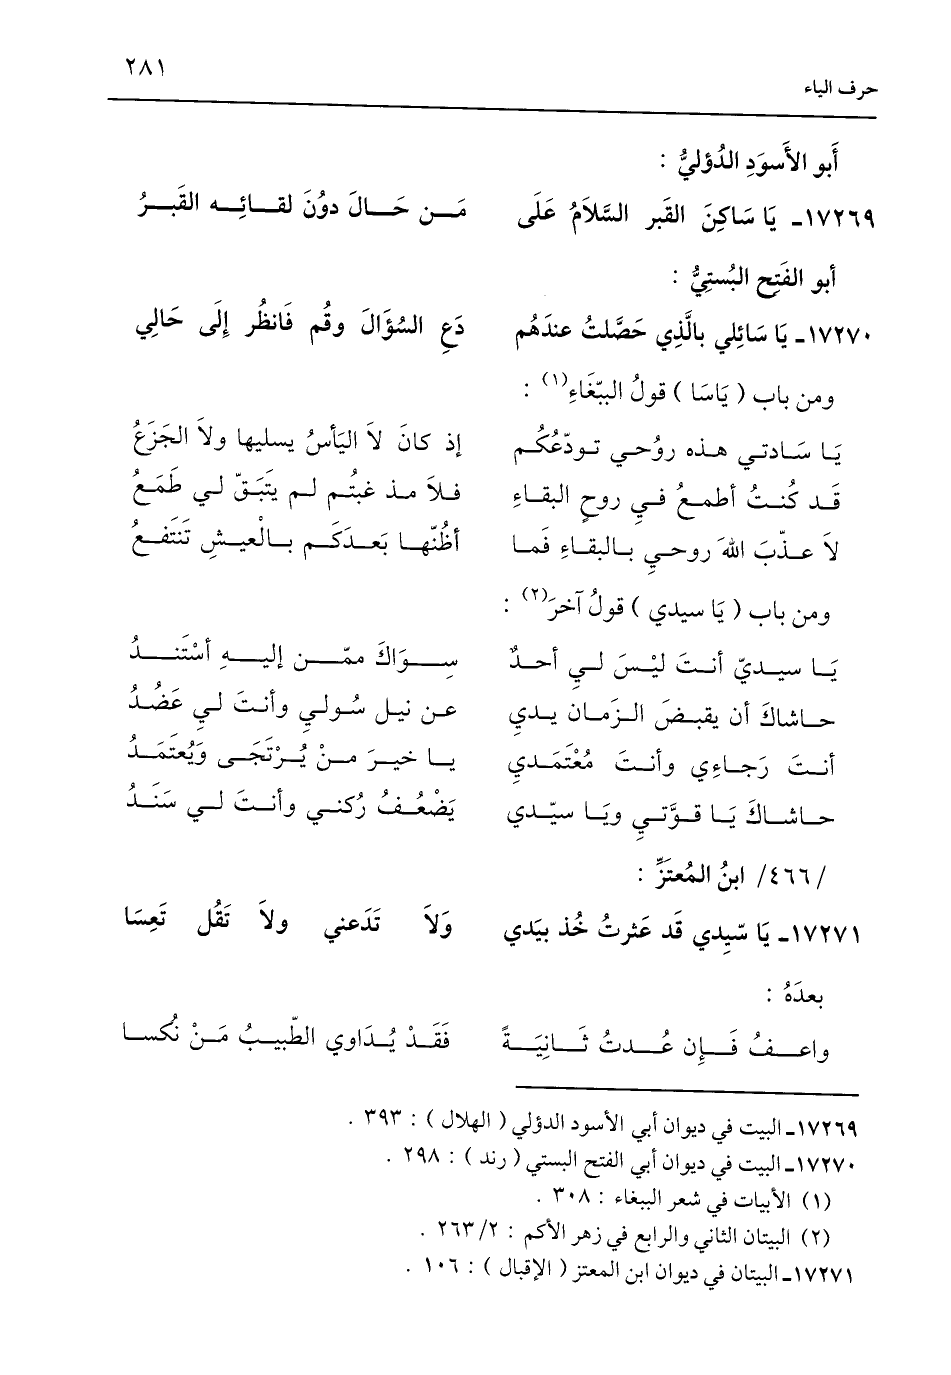 ٢٨١
حرف الياء
أَبو الأَسوَدِ الدُؤليُّ :
١٧٢٦٩ـ يَا سَاكِنَ القَبر السَّلاَمُ عَلَى مَـن حَـالَ دوُنَ لقـائِـه القَبـرُ
أبو الفَتِح البُستِيُّ :
١٧٢٧٠ـ يَا سَائِلي بالَّذِي حَصَّلتُ عندَهُم دَعِ السُؤَالَ وقُم فَانظُر إِلَى حَالِي
ومن باب ( يَاسَا ) قولُ الببّغَاءِ(١) :
يَـا سَـادتـي هـذه روُحـي تـودّعُكُـم إذ كانَ لاَ اليَأسُ يسليها ولاَ الجَزَعُ
قَـد كُنـتُ أطمـعُ فـي روحِ البقـاءِ فـلاَ مـذ غبتُـم لـم يَتَبَقّ لـي طَمَـعُ
لاَ عـذّبَ اللهُ روحـي بـالبقـاءِ فَمـا أظُنّهـا بَعـدَكَـم بـالْعيـشِ تَنَتَفـعُ
ومن باب ( يَا سيدي ) قولُ آخرَ(٢) :
يَـا سيـديّ أنـتَ ليْـسَ لـي أحـدٌ سـوَاكَ ممّـن إليـهِ أسْتَنـدُ
حـاشاكَ أن يقبـضَ الـزمـان يـدي عـن نيـل سُـولـي وأنـتَ لـي عَضُـدُ
أنـتَ رَجـاءِي وأنـتَ مُعْتَمَـدي يـا خيـرَ مـنْ يُـرْتَجَـى ويُعتمَـدُ
حـاشـاكَ يَـا قـوَّتـي ويَـا سيّـدي يَضْعُـفُ رُكنـي وأنـتَ لـي سَنَـدُ
/٤٦٦/ ابنُ المُعتَزِّ :
١٧٢٧١ـ يَا سّيِدي قَد عَثرتُ خُذ بيَدي وَلاَ تَدَعني ولاَ تَقُل تَعِسَا
بعدَهُ :
واعـفُ فَـإن عُـدتُ ثَـانِيَـةً فَقَـدْ يُـدَاوي الطّبيـبُ مَـنْ نُكسـا
١٧٢٦٩ـ البيت في ديوان أبي الأسود الدؤلي ( الهلال ) : ٣٩٣ .
١٧٢٧٠ـ البيت في ديوان أبي الفتح البستي ( رند ) : ٢٩٨ .
(١) الأبيات في شعر الببغاء : ٣٠٨ .
(٢) البيتان الثاني والرابع في زهر الأكم : ٢٦٣/٢ .
١٧٢٧١ـ البيتان في ديوان ابن المعتز ( الإقبال ) : ١٠٦ .